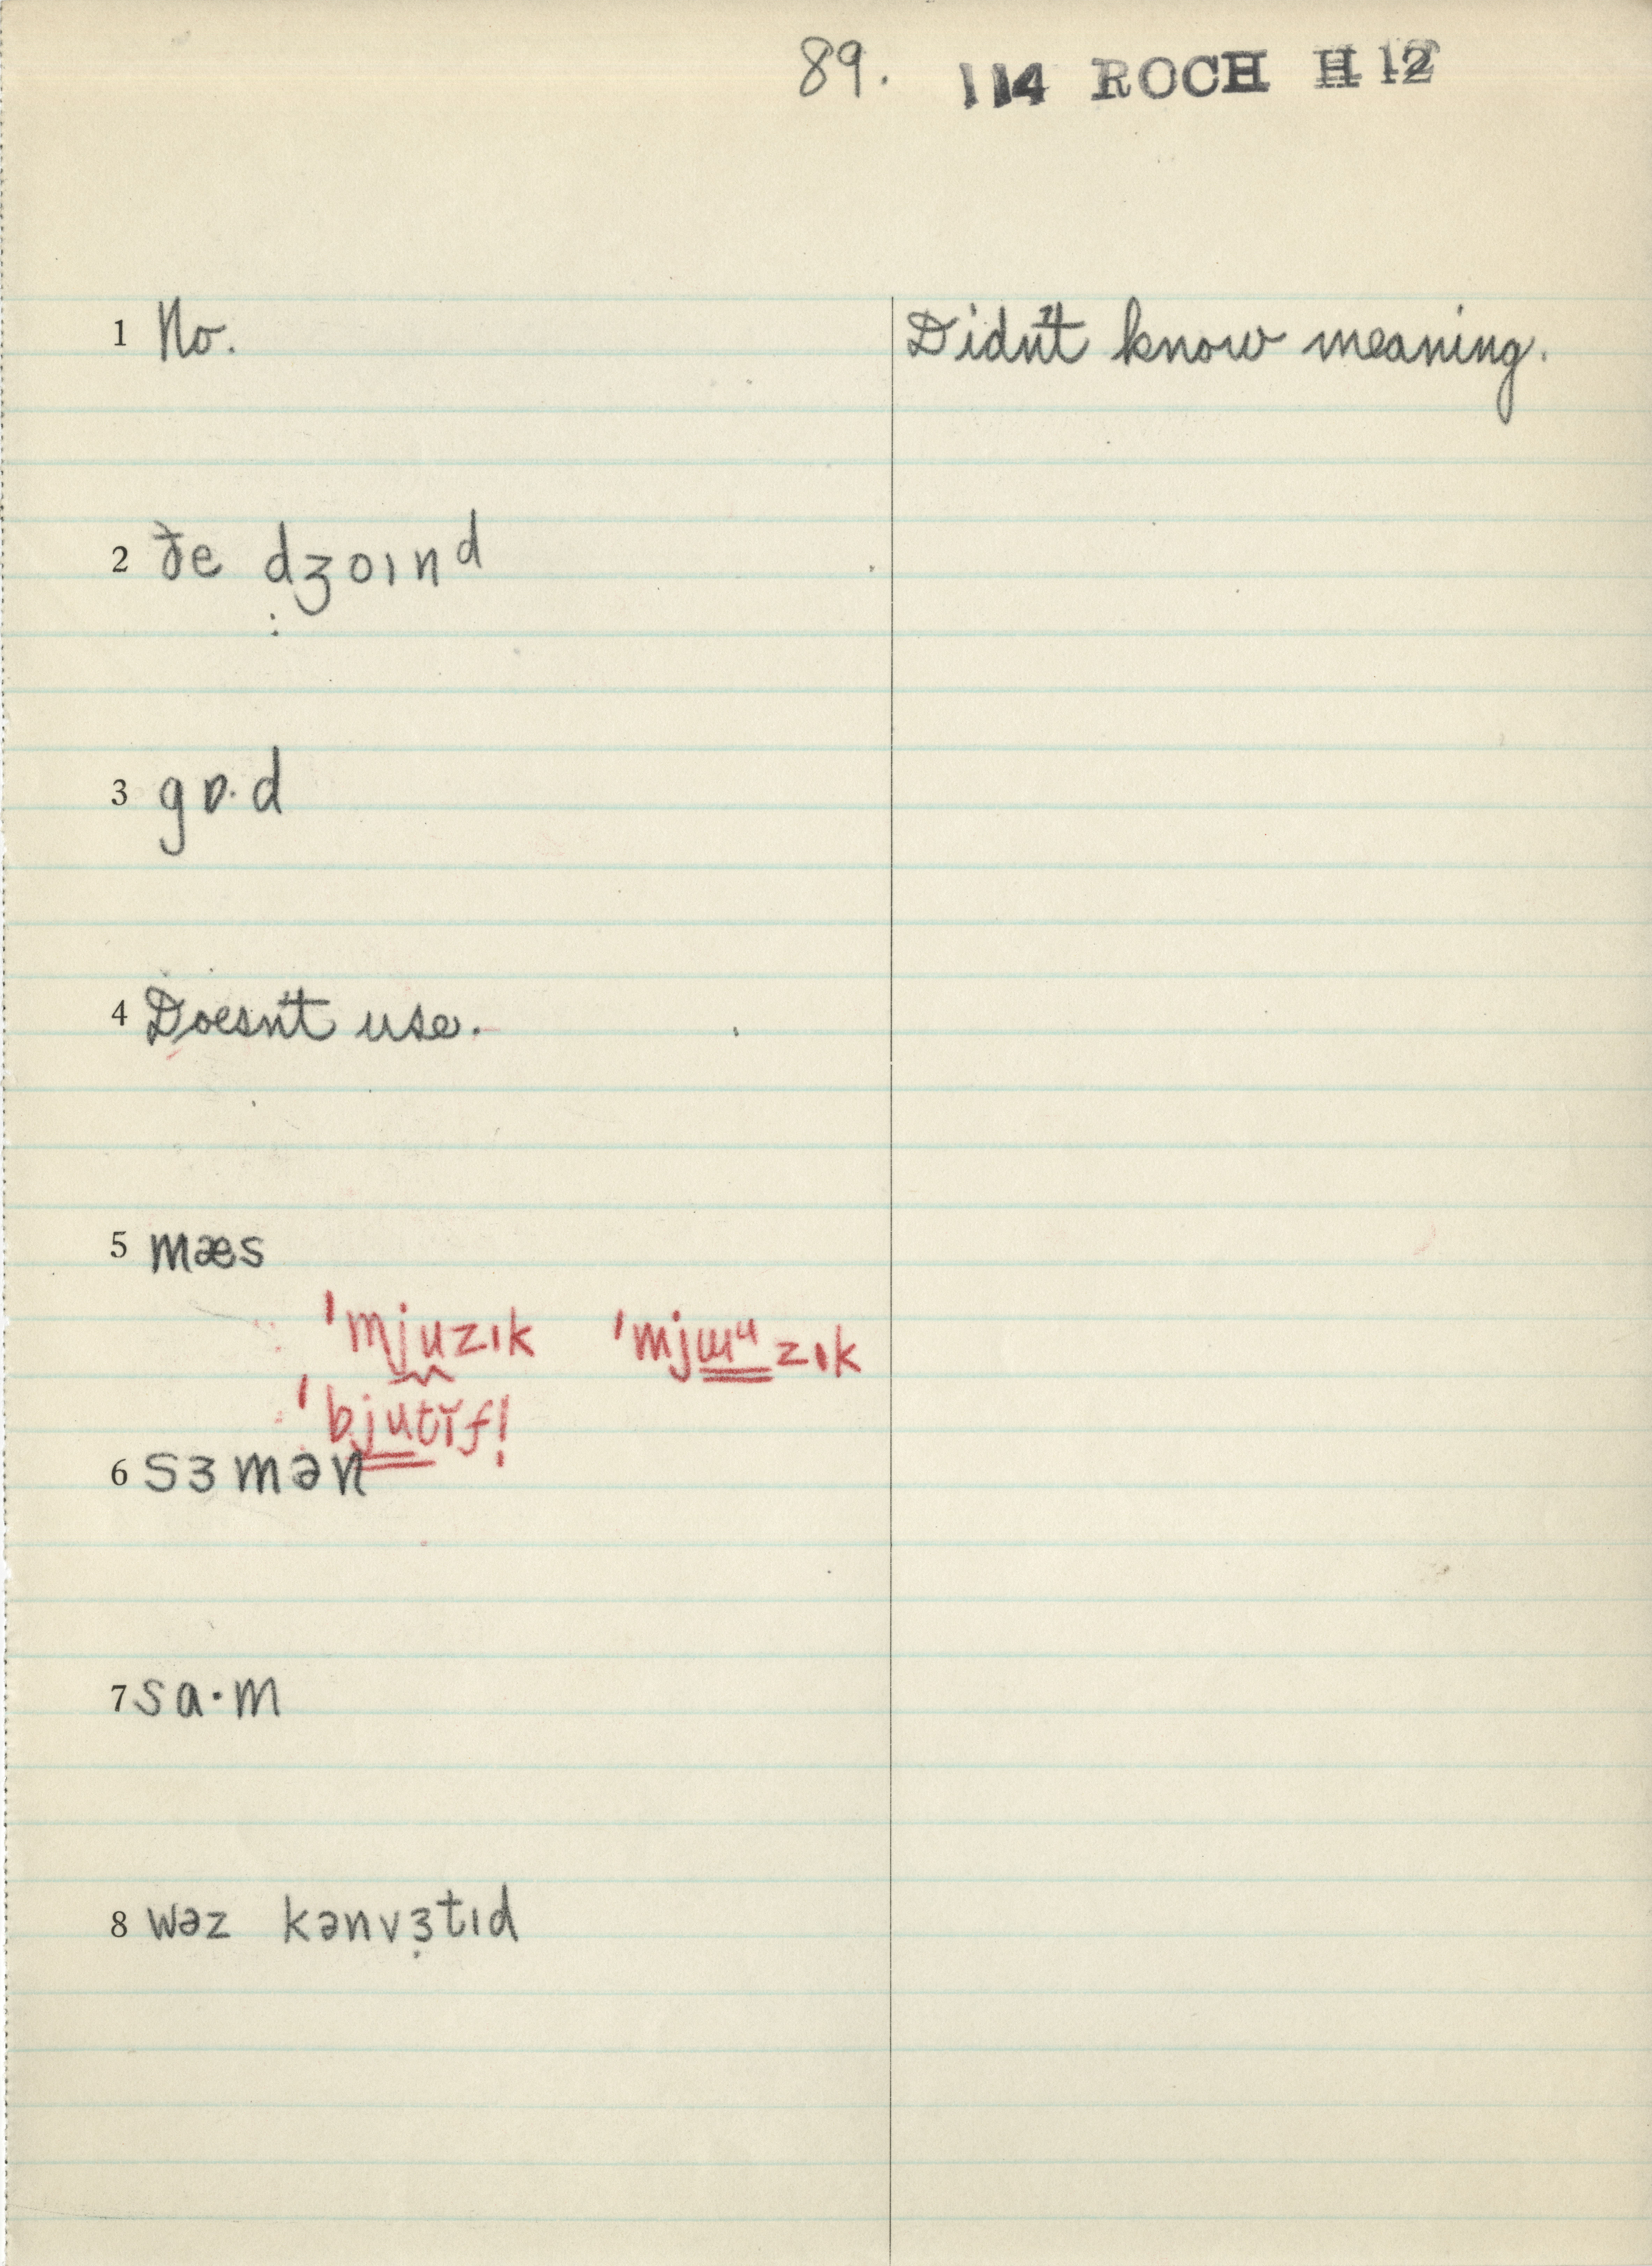 89. 114 ROCH H 12
1 No. Didn't know meaning.
2 ðe dʒoɪnᵈ
3 gɒ·d
4 Doesn't use.
5 mæs
ˈmjuzɪk ˈmjɯᵘzɪk
ˈbjutĭf!
6 sɜmən
7 sɑ·m
8 wəz kənvɜ̣tɪd